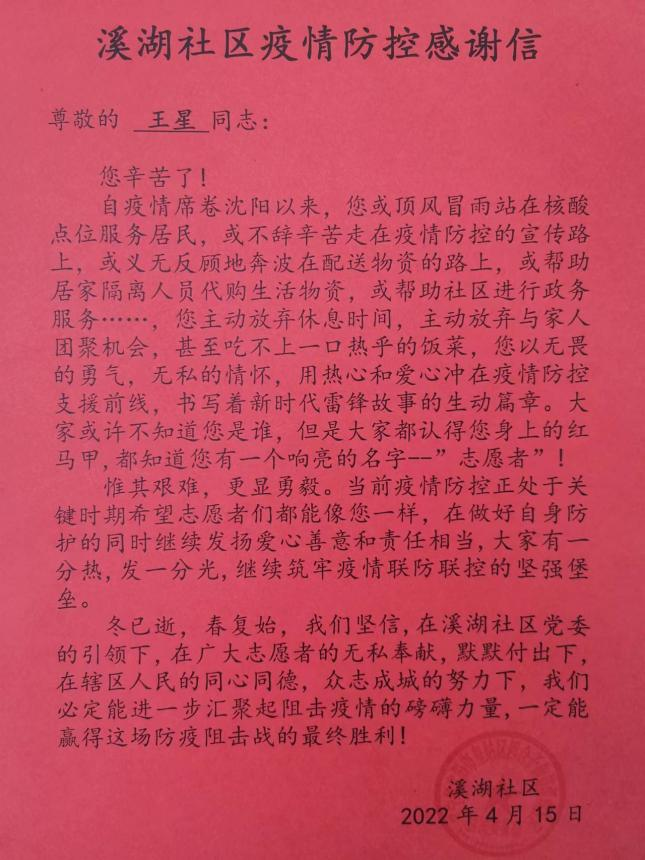 溪湖社区疫情防控感谢信
尊敬的 王星 同志：
您辛苦了！
自疫情席卷沈阳以来，您或顶风冒雨站在核酸
点位服务居民，或不辞辛苦走在疫情防控的宣传路
上，或义无反顾地奔波在配送物资的路上，或帮助
居家隔离人员代购生活物资，或帮助社区进行政务
服务……，您主动放弃休息时间，主动放弃与家人
团聚机会，甚至吃不上一口热乎的饭菜，您以无畏
的勇气，无私的情怀，用热心和爱心冲在疫情防控
支援前线，书写着新时代雷锋故事的生动篇章。大
家或许不知道您是谁，但是大家都认得您身上的红
马甲,都知道您有一个响亮的名字--”志愿者”！
惟其艰难，更显勇毅。当前疫情防控正处于关
键时期希望志愿者们都能像您一样，在做好自身防
护的同时继续发扬爱心善意和责任相当,大家有一
分热,发一分光,继续筑牢疫情联防联控的坚强堡
垒。
冬已逝，春复始，我们坚信,在溪湖社区党委
的引领下,在广大志愿者的无私奉献,默默付出下,
在辖区人民的同心同德，众志成城的努力下，我们
必定能进一步汇聚起阻击疫情的磅礴力量,一定能
赢得这场防疫阻击战的最终胜利！
溪湖社区
2022 年 4 月 15 日